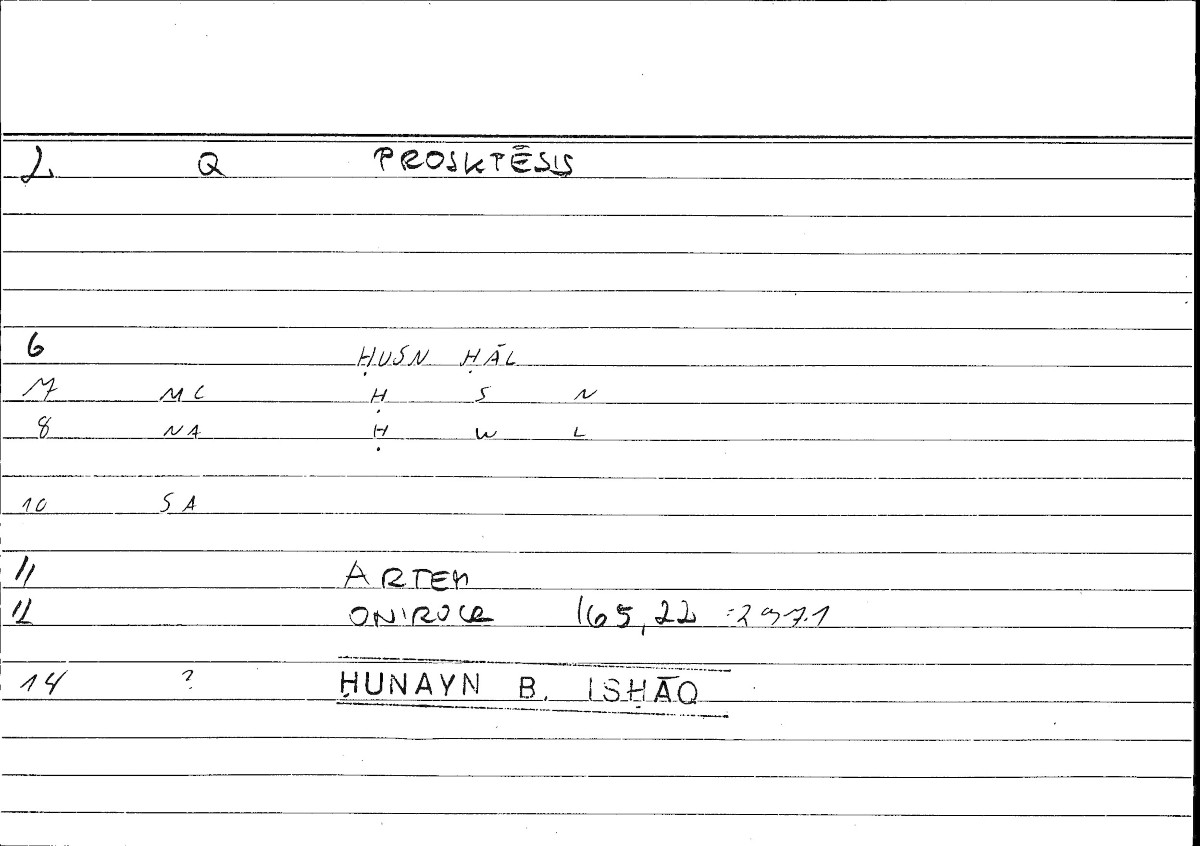 2 Q PROSKTĒSIS
6 ḤUSN ḤĀL
7 MC Ḥ S N
8 NA Ḥ W L
10 SA
11 ARTEM
12 ONIROCR 165,22 :297.1
14 ? ḤUNAYN B. ISḤĀQ